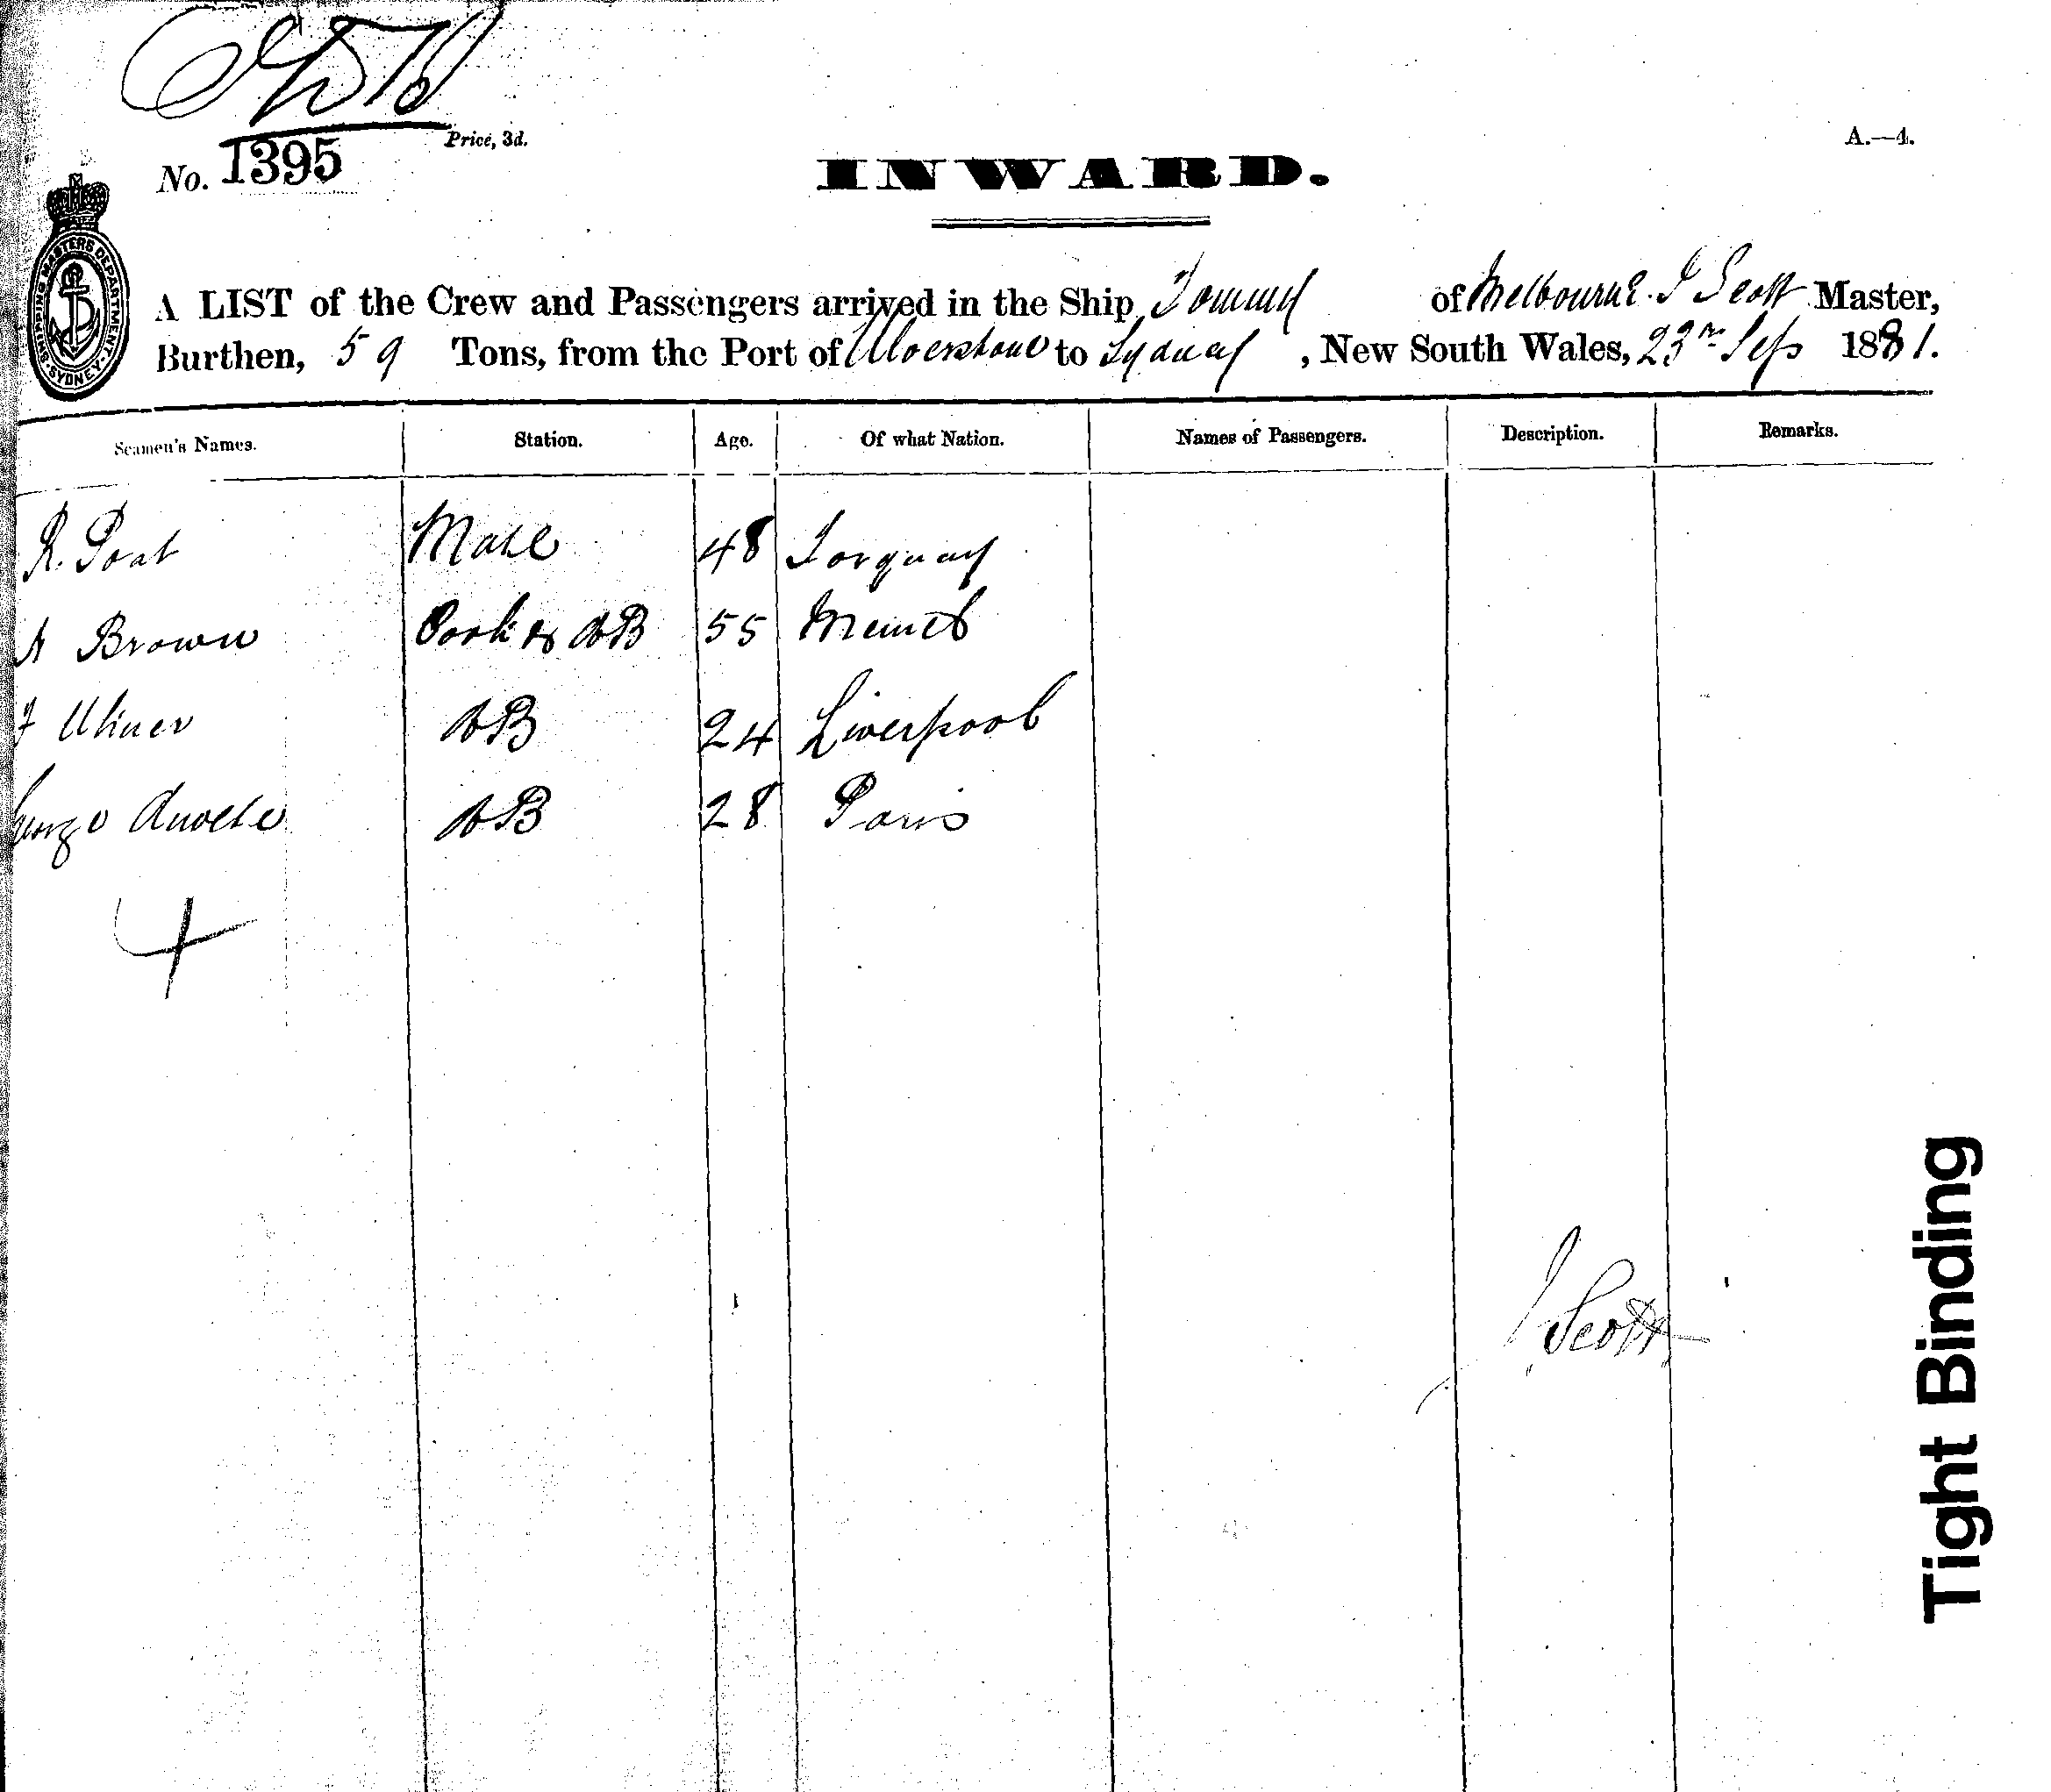 No. 1395
Price, 3d.
A.—4.
INWARD.
SHIPPING MASTERS DEPARTMENT. SYDNEY.
A LIST of the Crew and Passengers arrived in the Ship Tommy of Melbourne. J Scott Master,
Burthen, 59 Tons, from the Port of Ulverstone to Sydney, New South Wales, 23rd Sep 1881.
Seamen's Names. Station. Age. Of what Nation. Names of Passengers. Description. Remarks.
R. Mate 48 Torquay
A Brown Cook & AB 55 Memel
AB 24 Liverpool
George AB 28 Paris
4
J Scott
Tight Binding